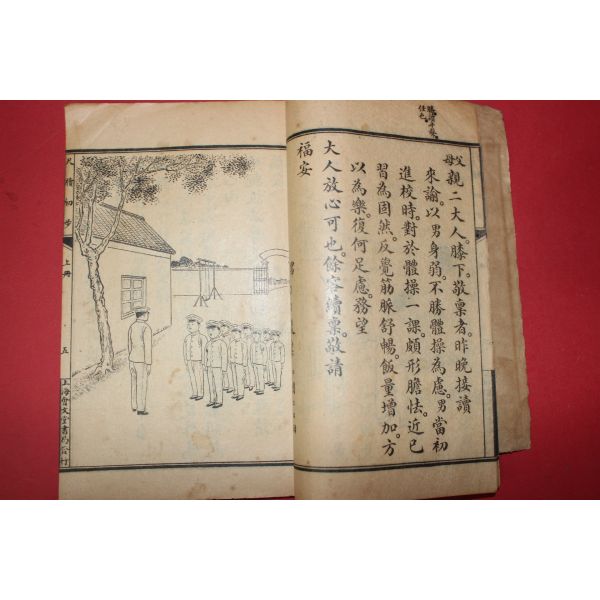 勝音升。
任也。
父母親二大人。膝下。敬稟者。昨晚接讀
來諭。以男身弱。不勝體操為慮。男當初
進校時。對於體操一課。頗形膽怯。近已
習為固然。反覺筋脈舒暢。飯量增加。方
以為樂。復何足慮。務望
大人放心可也。餘容續稟。敬請
福安
尺牘初步
上冊
五
上海會文堂書局發行